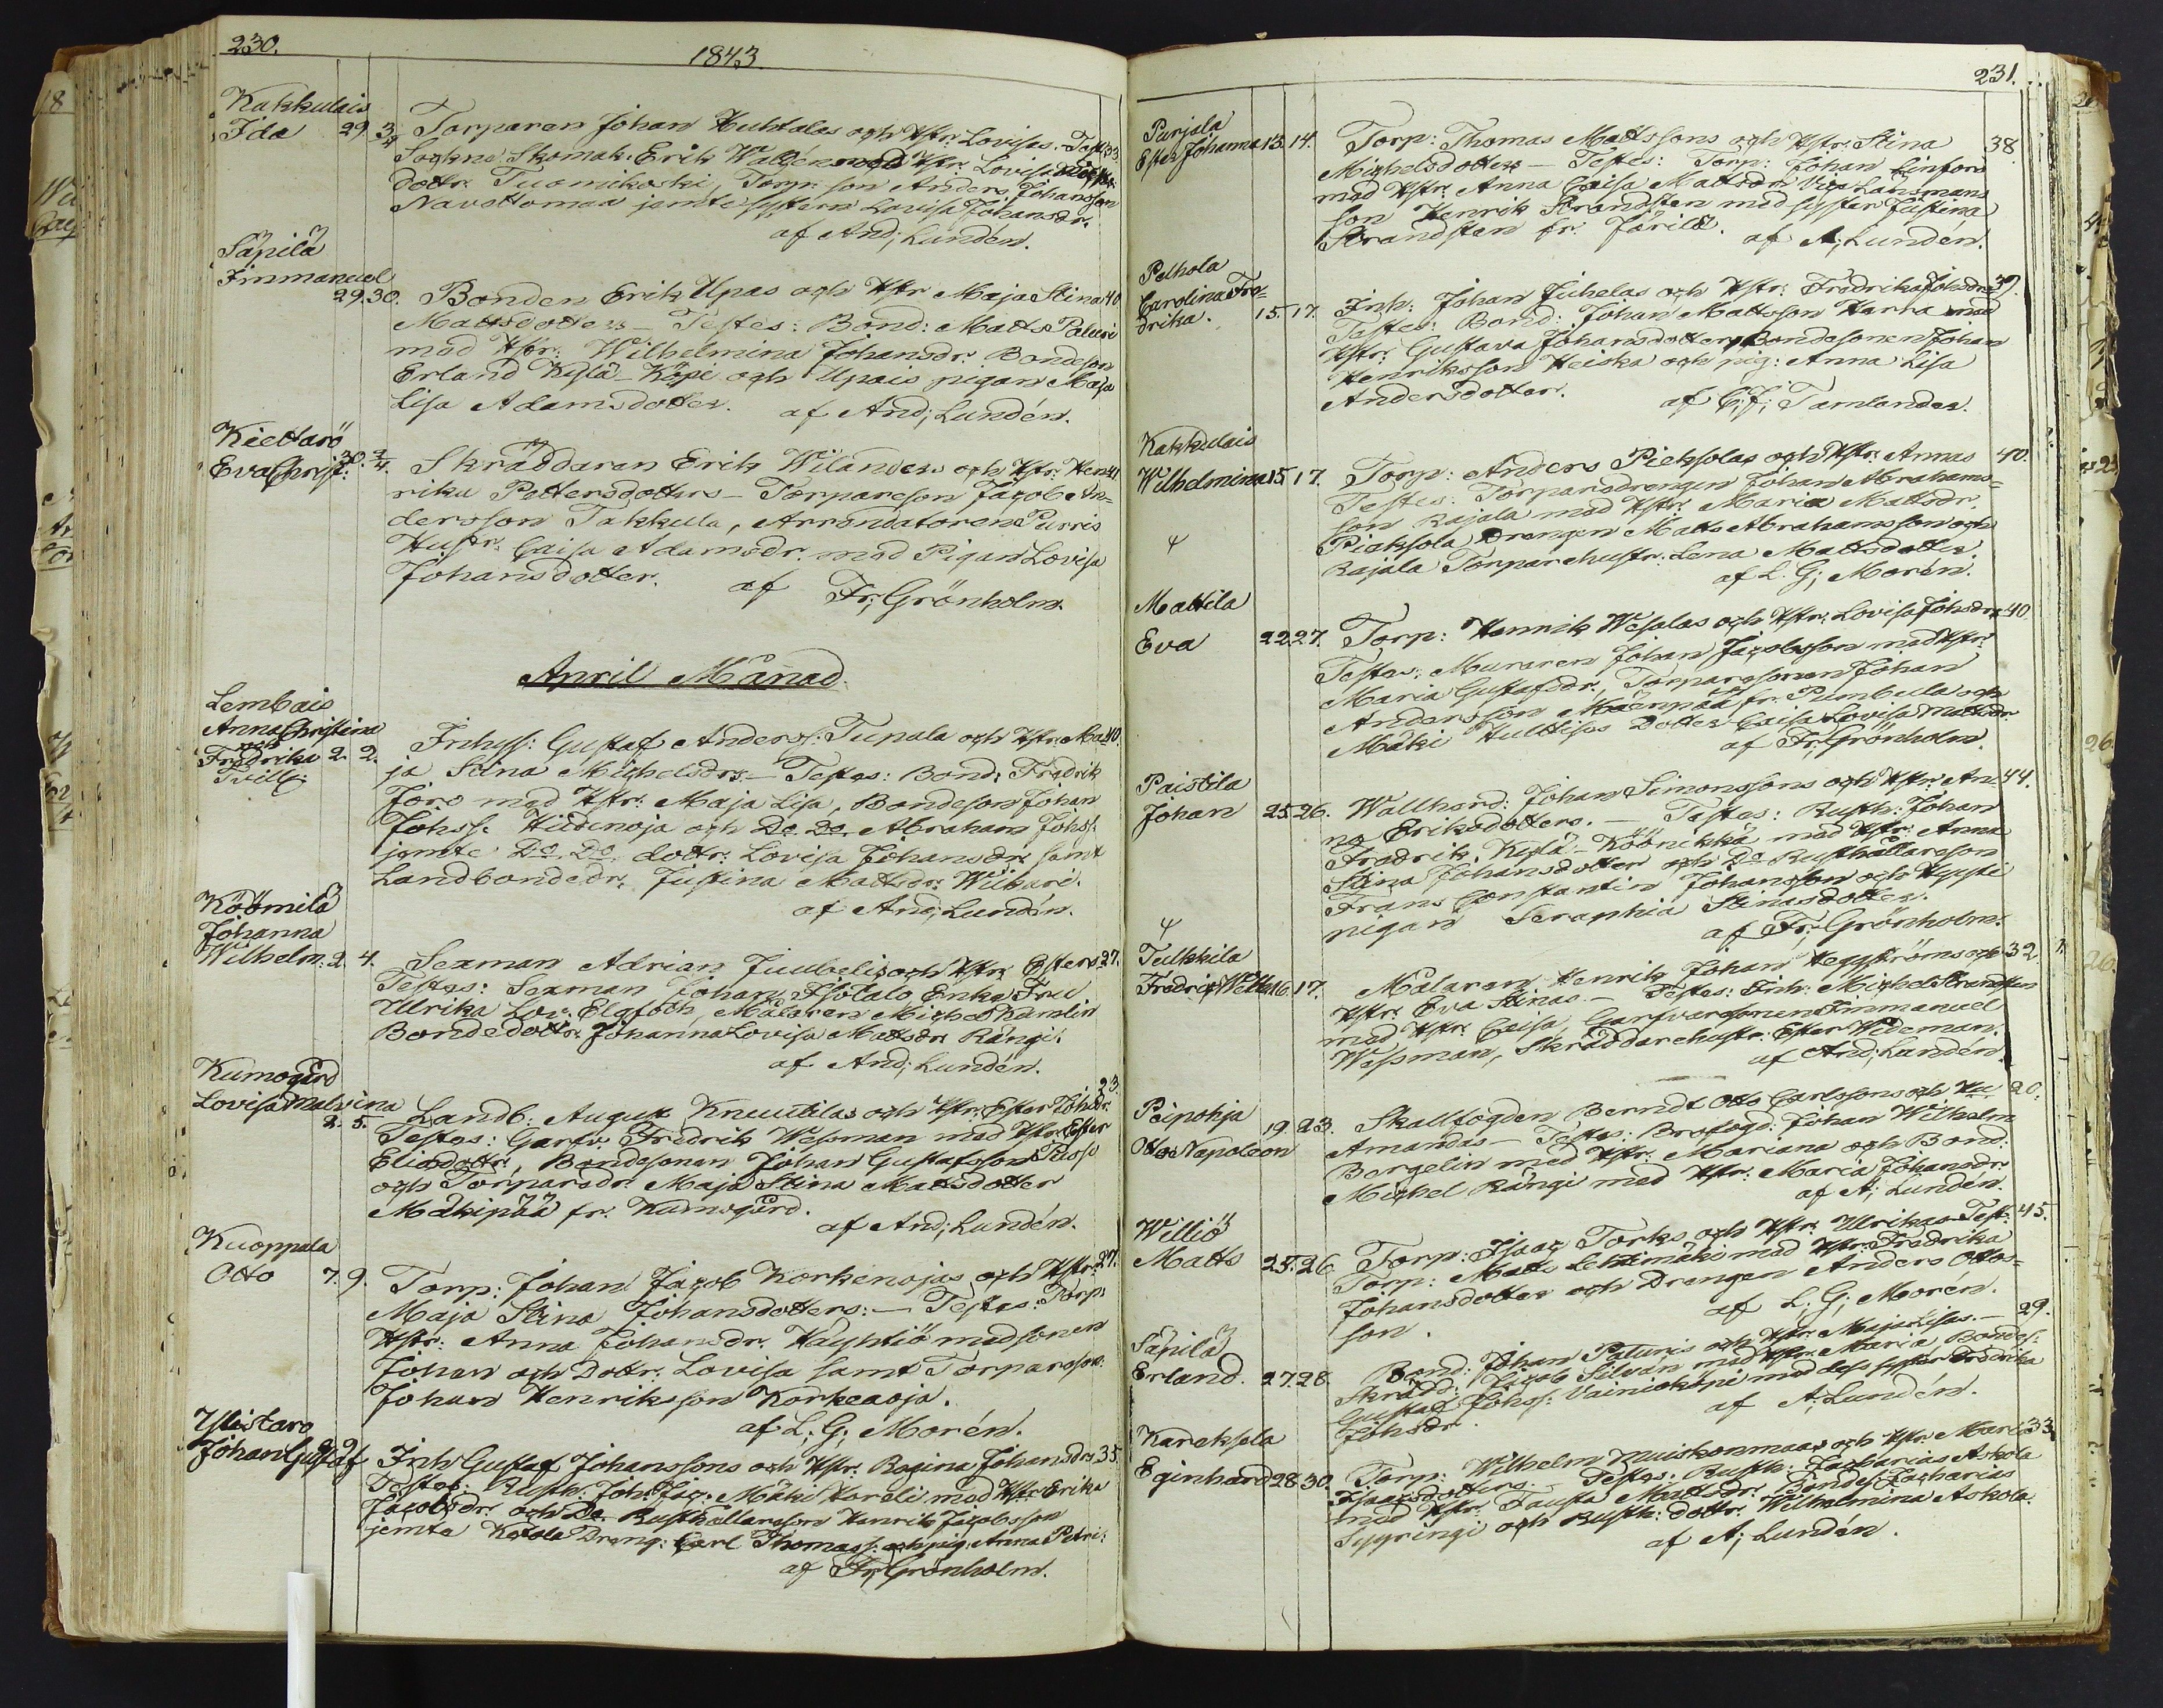 230.
1843.
Kakkulais
Ida 29. 3/4 Torparen Johan Huhtalas och Hstr. Lovisas. Test: 33.
Sockne Skomak. Erik Wallén med Hstr. Lovisa
dottr. Tuomikoski, Torp. son Anders Johansson
Navettomaa jemte systern Lovisa Johansdr.
af And; Lundén.
Säpilä
Immanuel
29. 30. Bonden Erik Upas och Hstr Maja Stina 40
Mattsdotters – Testes: Bond: Matts Paluri
med Hstr: Wilhelmina Johansdr. Bondeson
Erland Kylä-Köpi och Upais pigan Maja
Lisa Adamsdotter. af And; Lundén.
Kiettarö
Eva Christ: 30. 2/4. Skräddaren Erik Wilanders och Hstr: Hen- 41.
rika Pettersdotters – Torpareson Jacob An-
dersson Takkula, Arrendatoren Purris
Hustr. Caisa Adamsdr. med Pigan Lovisa
Johansdotter. af Fr; Grönholm.
April Månad.
Lembais
Anna Christina
och
Fredrika 2. 2. Inhys: Gustaf Anderss: Tupala och Hstr. Ma- 40.
Tvill:
ja Stina Michelsdrs. – Testes: Bond: Fredrik
Joro med Hstr: Maja Lisa, Bondeson Johan
Johss. Hiidenoja och Do. Do. Abraham Johss:
jemte Do. Do. dottr. Lovisa Johansdr. samt
Landbondedr. Justina Mattsdr. Wilkari.
af And; Lundén.
Köömilä
Johanna
Wilhelm: 2. 4. Sexman Adrian Juubelis och Hstr. Esters 27.
Testes: Sexman Johan Isotalo, Enke Fru
Ulrika Lov: Elgfoth, Målaren Michel Ramlin
Bondedottr: Johanna Lovisa Mattsdr Rängi.
af And; Lundén.
Kumogård
Lovisa Malvina
2. 5. Landb: August Knuutilas och Hstr: Ester Johsdr. 23.
Testes: Garfv: Fredrik Wessman med Hstr: Ester
Eliasdottr, Bondesonen Johan Gustafsson Passo
och Torparedr. Maja Stina Mattsdotter
Mäkipää fr. Kumogård.
af And; Lundén.
Kuoppala
Otto 7. 9. Torp: Johan Jacob Korkenojas och Hstr: 27.
Maja Stina Johansdotters: – Testes: Torp:
Hstr: Anna Johansdr. Häyhtiö med sonen
Johan och Dottr. Lovisa samt Torpareson
Johan Henriksson Korkeaoja.
af L; G; Morén.
Ylistaro
Johan Gustaf 9. 9. Inh Gustaf Johanssons och Hstr: Regina Johansdrs 35.
Testes: Rusth. Joh: Jac: Mäki Hareli med Hstr Erika
Jacobsdr. och Do. Rusthållareson Henrik Jacobsson
jemte Katala Dräng: Carl Thomass: och pig: Anna Petri:
af Fr; Grönholm.
231.
Purjala
Ester Johanna 13. 14. Torp: Thomas Mattssons och Hstr: Stina 38.
Michelsdotters – Testes: Torp: Johan Linfors
med Hstr. Anna Caisa Mattsdr. Vice Länsmans
son Henrik Strandsten med syster Justina
Strandsten fr. Järilä. af A; Lundén.
Pelhola
Carolina Fre-
drika. 15. 17. Inh: Johan Juhelas och Hstr: Fredrika Johsdrs 39.
Testes: Bond: Johan Mattsson Harra med
Hstr: Gustava Johansdotter, Bondesonen Johan
Henriksson Heiska och pig: Anna Lisa
Andersdotter. af C; J; Tamlander.
Kakkulais
Wilhelmina 15. 17. Torp: Anders Pieksolas och Hstr: Annas 40.
Testes: Torparedrengen Johan Abrahams-
son Rajala med Hstr. Maria Mattsdr.
Pieksola, Drengen Matts Abrahamsson och
Rajala Torparehustr: Lena Mattsdotter.
af L. G; Morén.
Mattila
Eva 22. 27. Torp: Henrik Wesalas och Hstr: Lovisa Johsdrs 40
Testes: Muraren Johan Jacobsson med Hstr:
Maria Gustafsdr, Torparesonen Johan
Andersson Mäenpää fr. Pumbula och
Mäki Hulttiss Dotter Caisa Lovisa Mattsdr.
af Fr; Grönholm.
Paistila
Johan 25. 26. Wallhard: Johan Simonssons och Hstr: An- 44.
na Eriksdotters. – Testes: Rusth: Johan
Fredrik Kylä-Köönikkä med Hstr. Anna
Stina Johansdotter och Do Rusthållareson
Frans Constantin Johansson och Hyyti
pigan Seraphia Stinasdotter.
af Fr; Grönholm.
Tulkkila
Fredric Wilh: 16. 17. Målaren Henrik Johan Heggströms och 32.
Hstr: Eva Stinas. – Testes: Inh: Michel Strandsten
med Hstr: Caisa, Garfvaresonen Immanuel
Wessman, Skräddarehustr: Ester Wideman.
af And; Lundén.
Peipohja 19. 23. Skallfogden Berndt Otto Carlssons och Hu 20.
Otto Napoleon
Amandas – Testes: Brofogd: Johan Wilhelm
Bergelin med Hstr: Mariana och Bond:
Michel Rängi med Hstr: Maria Johansdr.
af A; Lundén.
Williö
Matts 25. 26 Torp: Isaac Torks och Hstr. Ulrikas – Test: 45.
Torp: Matts Lehtimäki med Hstr: Fredrika
Johansdotter och Drengen Anders Ottos-
son. af L; G; Morén.
Säpilä
Erland. 27. 28. Bond: Johan Paluris och Hstr: Maja Lisas. – 29.
Skrädd: Jacob Silvan med Hstr: Maria, Bondes:
Gustaf Johss: Vainiokäpi med dess syster Fredrika
Johsdr. af A; Lundén.
Kareksela
Eginhard 28. 30. Torp: Wilhelm Muiskonmaas och Hstr: Maria 33.
Isaacsdotters – Testes: Rusth: Zacharias Askola
med Hstr: Fausta Mattsdr. Bondes: Zacharias
Sypringi och Rusth: dottr: Wilhelmina Askola.
af A; Lundén.